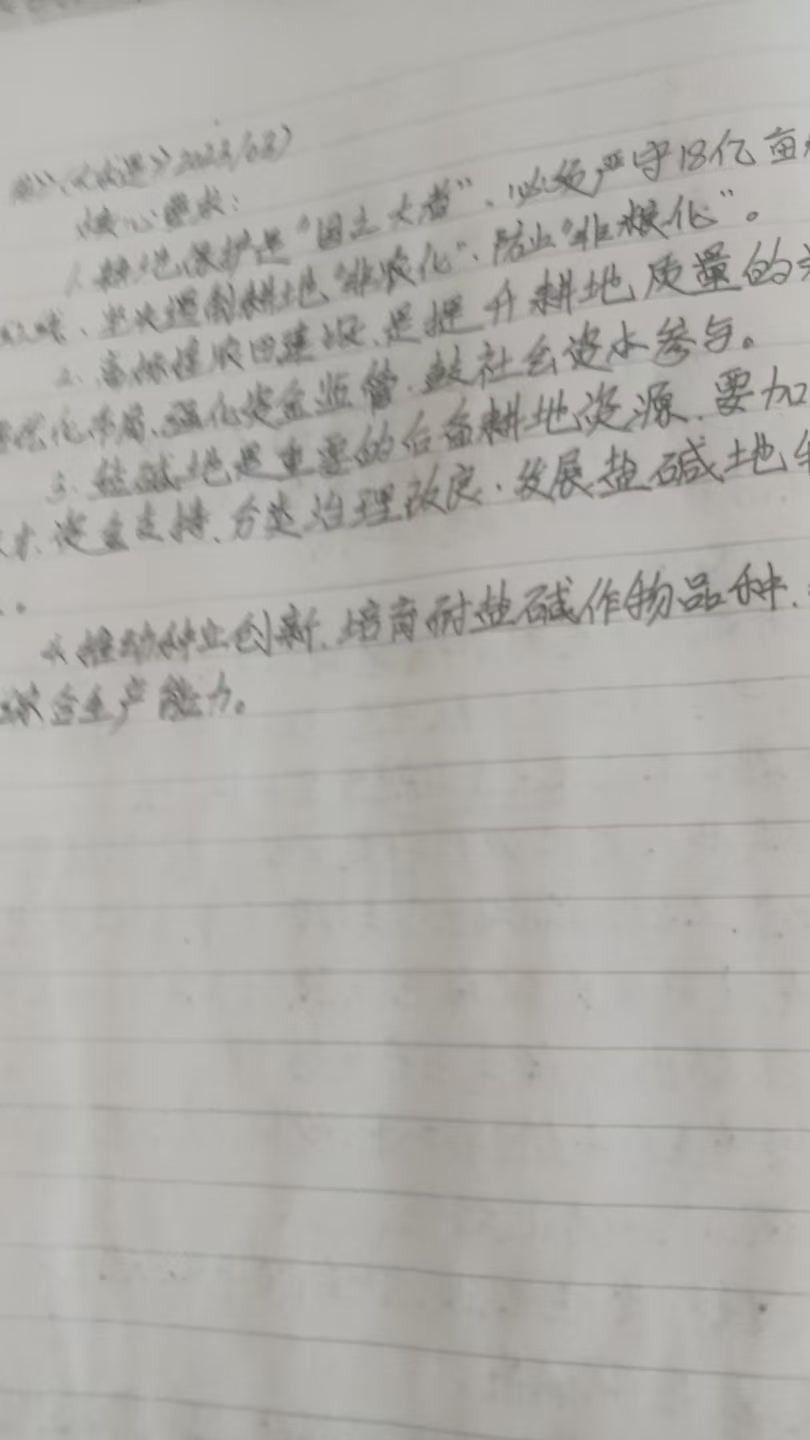 《求是》2023/03)
核心要求：
1. 耕地保护是"国之大者"、必须严守18亿亩
坚决遏制耕地"非农化"、防止"非粮化"。
2. 高标准农田建设、是提升耕地质量的
优化布局、强化资金监管、鼓社会资本参与。
3. 盐碱地是重要的后备耕地资源、要加
资金支持、分类治理改良、发展盐碱地
4. 推动种业创新、培育耐盐碱作物品种、
综合生产能力。